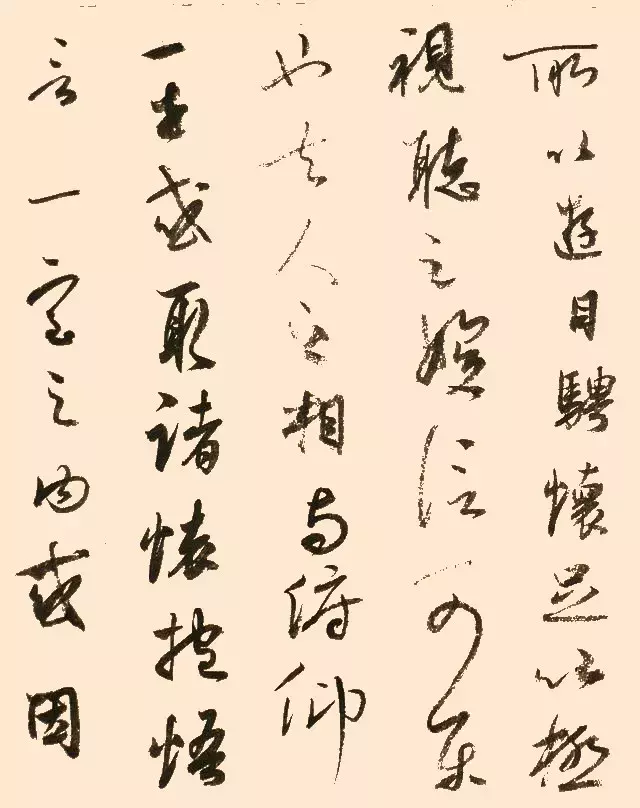 所以遊目騁懷足以極
視聽之娛信可樂
也夫人之相與俯仰
一世或取諸懷抱悟
言一室之內或因